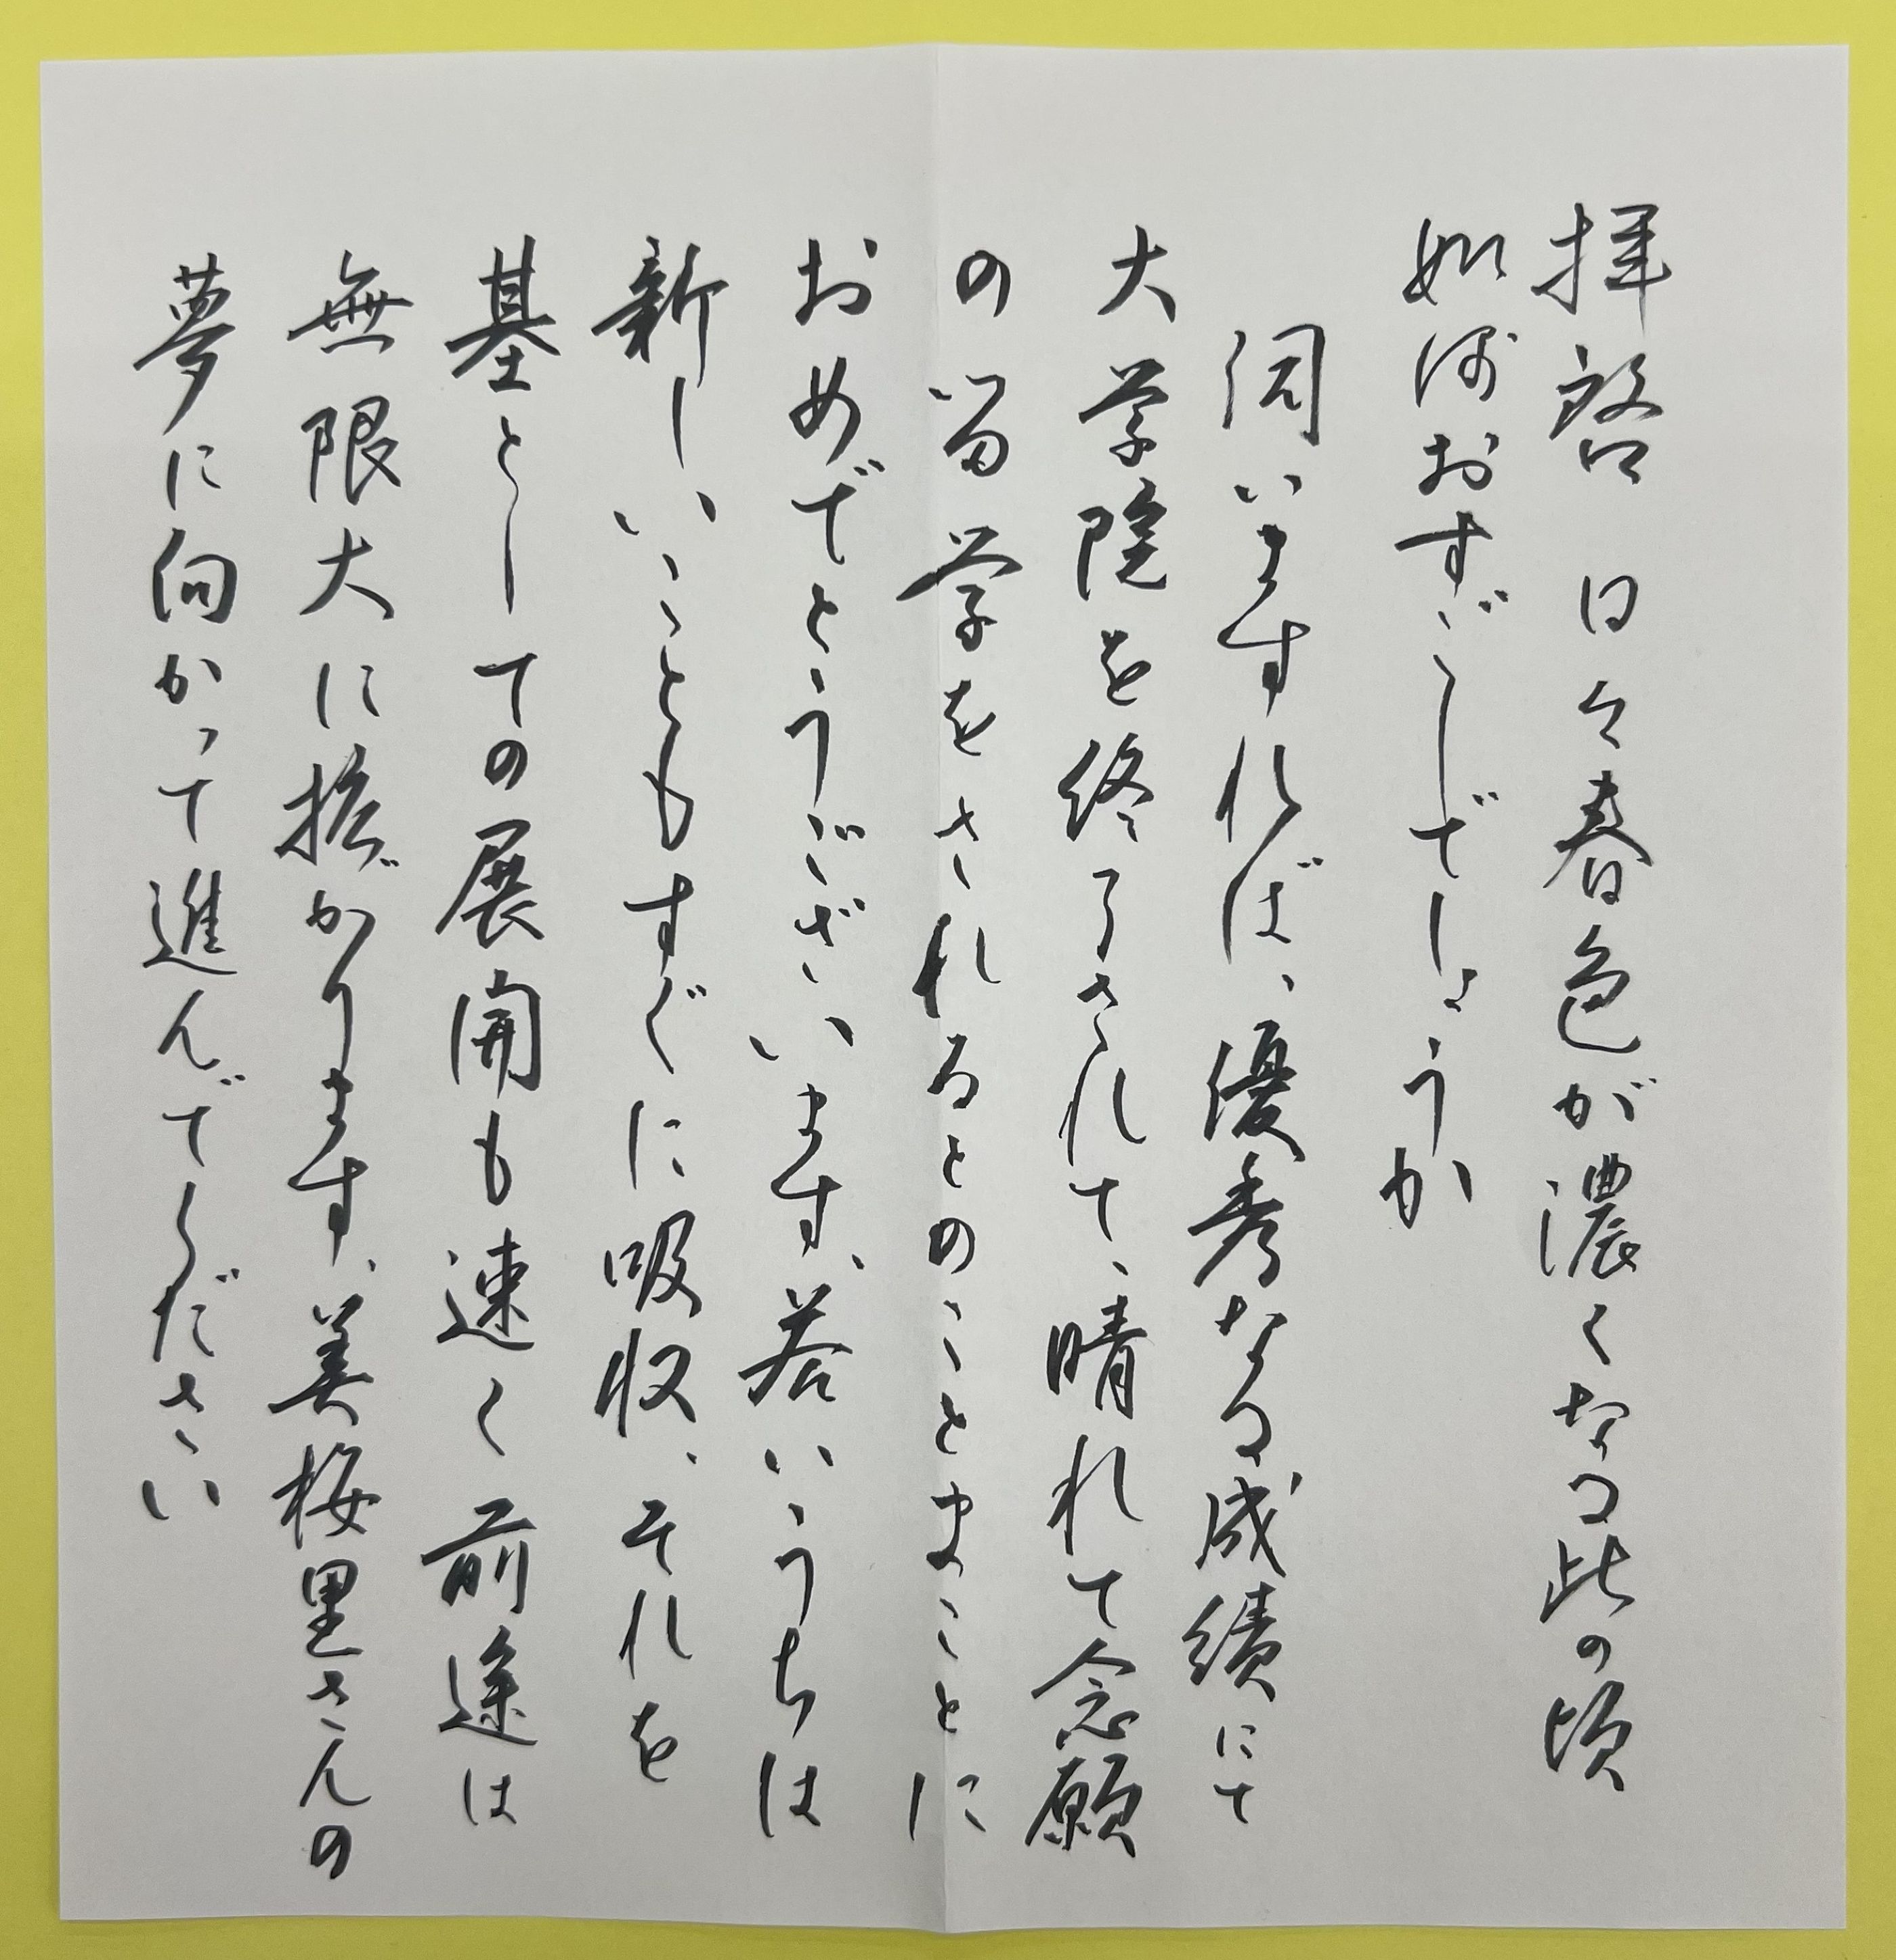 拝啓 日々春色が濃くなる此の頃
如何おすごしでしょうか
伺いますれば、優秀なる成績にて
大学院を終了されて、晴れて念願
の留学をされるとのことまことに
おめでとうございます、若いうちは
新しいこともすぐに吸収、それを
基としての展開も速く前途は
無限大に拡がります、美桜里さんの
夢に向かって進んでください